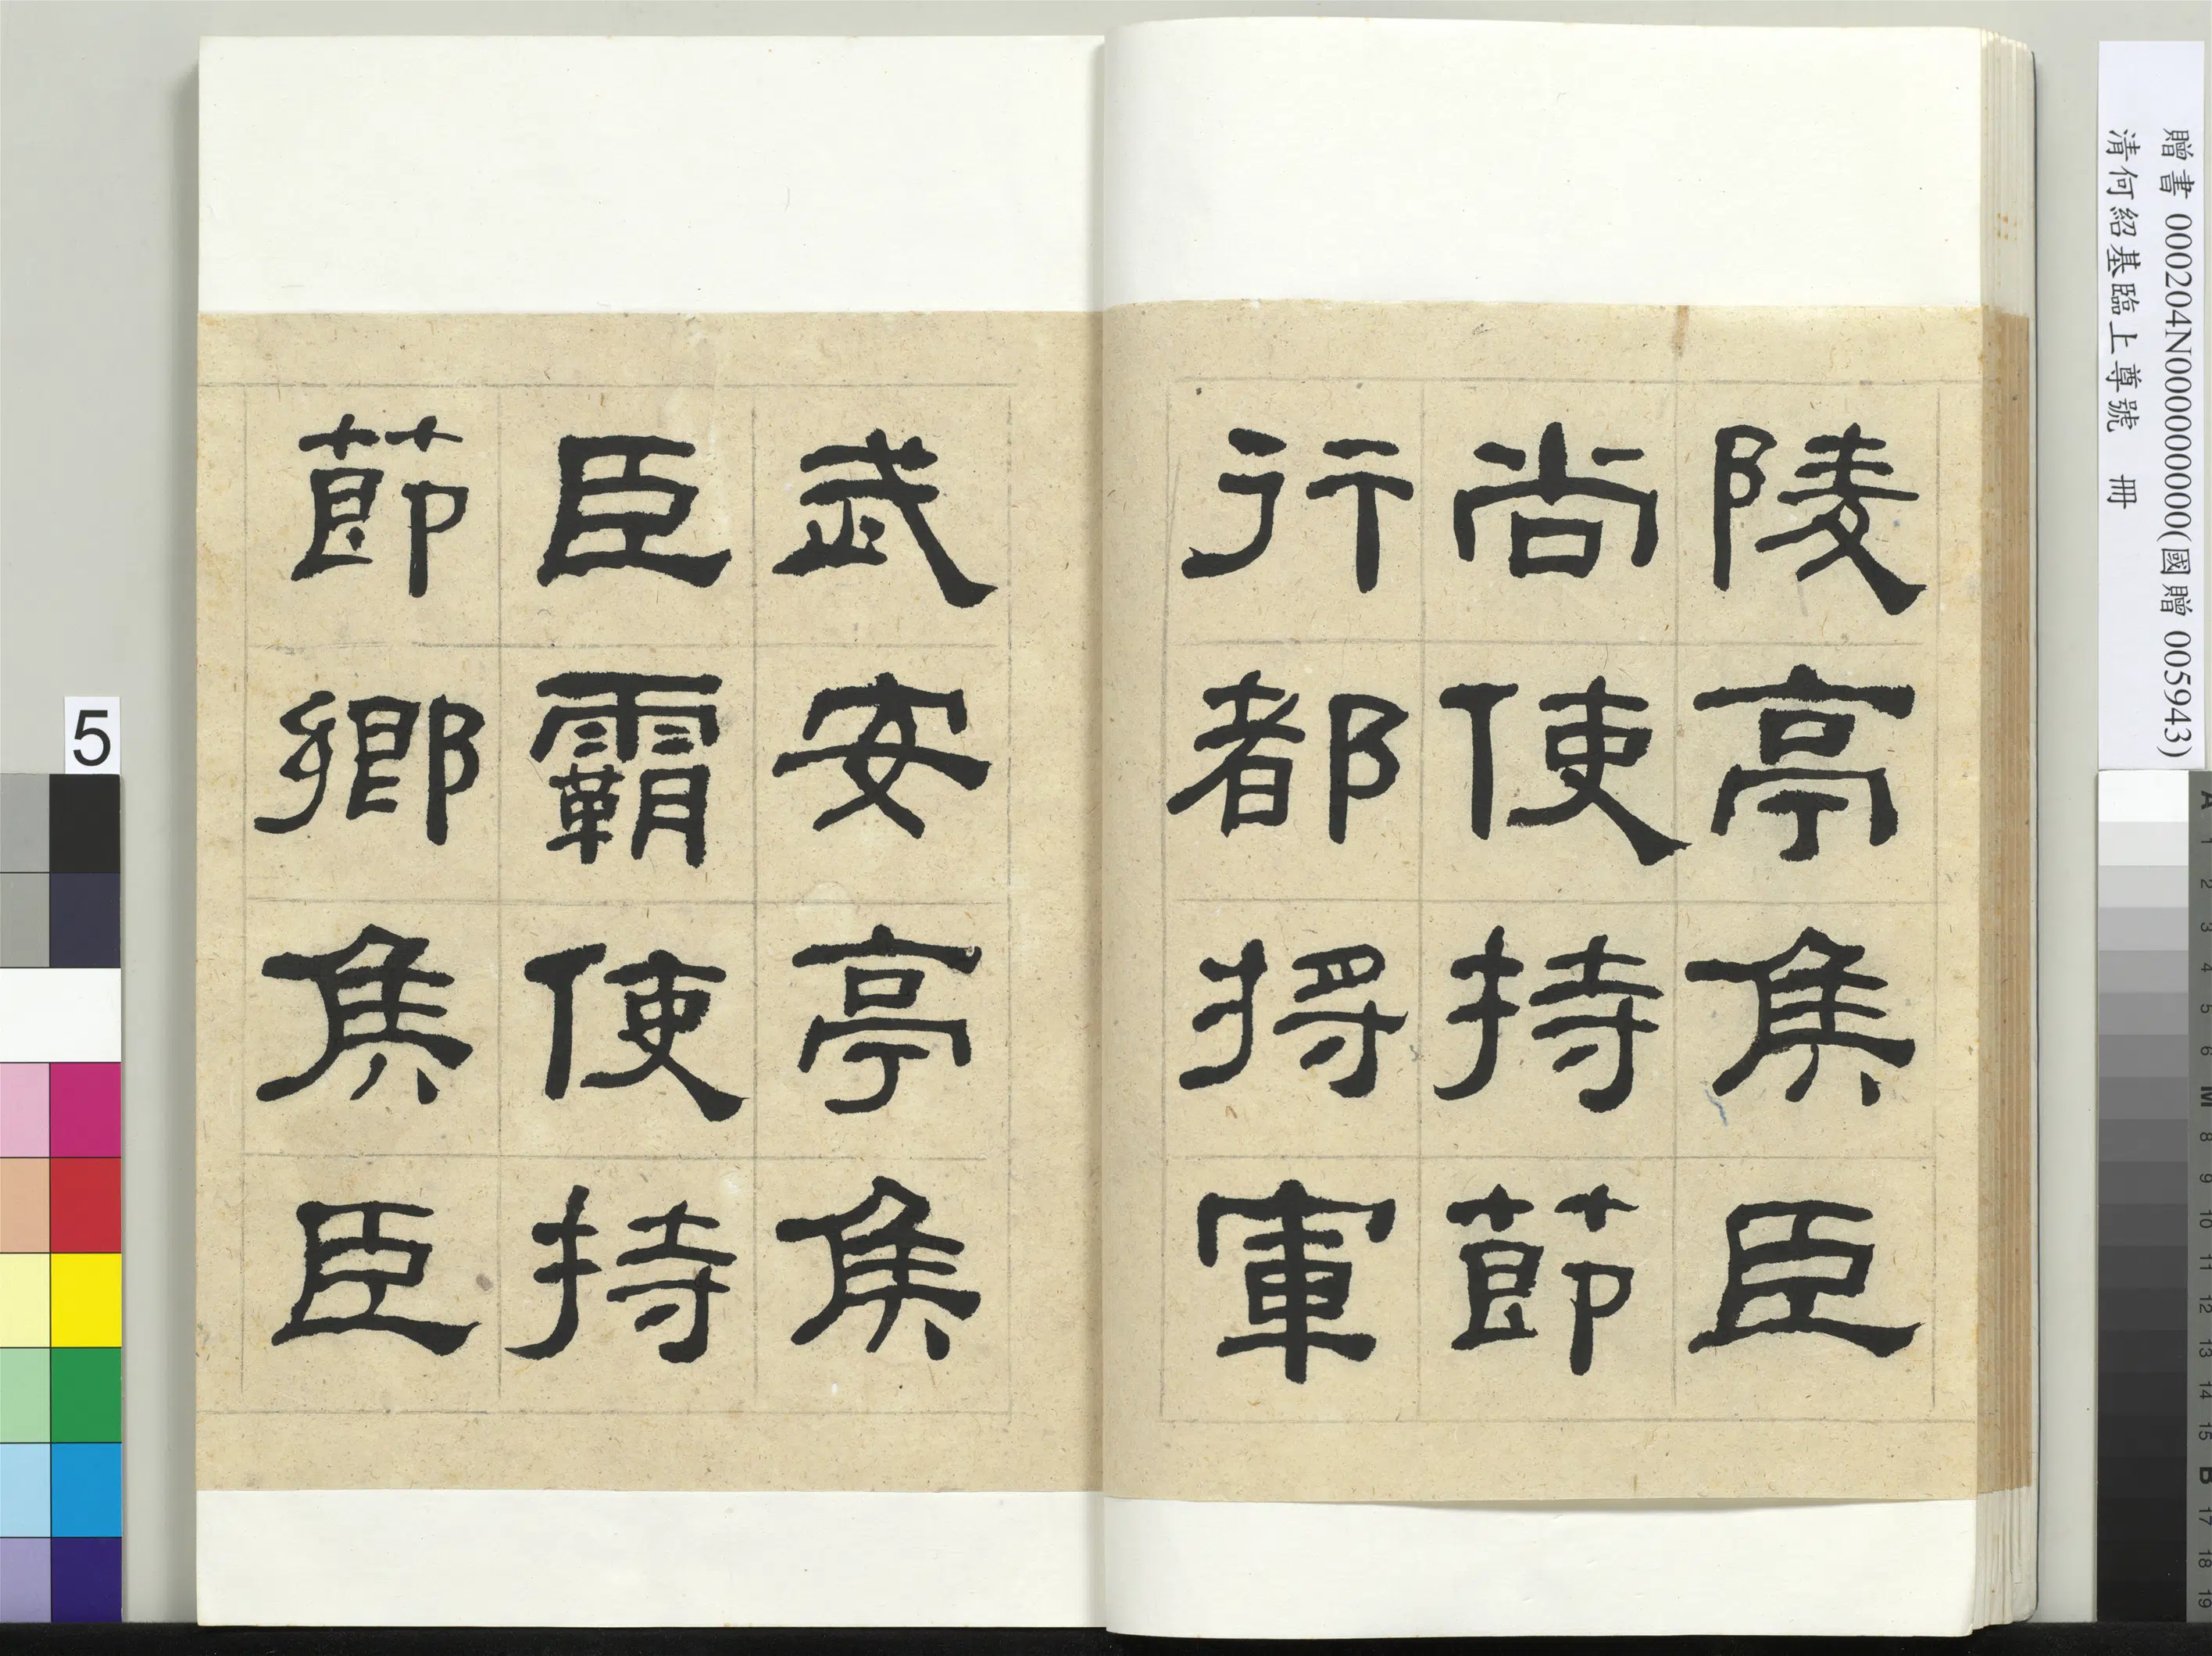 陵亭侯臣
尚使持節
行都将軍
武安亭侯
臣霸使持
節鄉侯臣
贈書 000204N000000000(國贈 005943)
清何紹基臨上尊號 冊
5
A
1
2
3
4
5
6
M
8
9
10
11
12
13
14
15
B
17
18
19